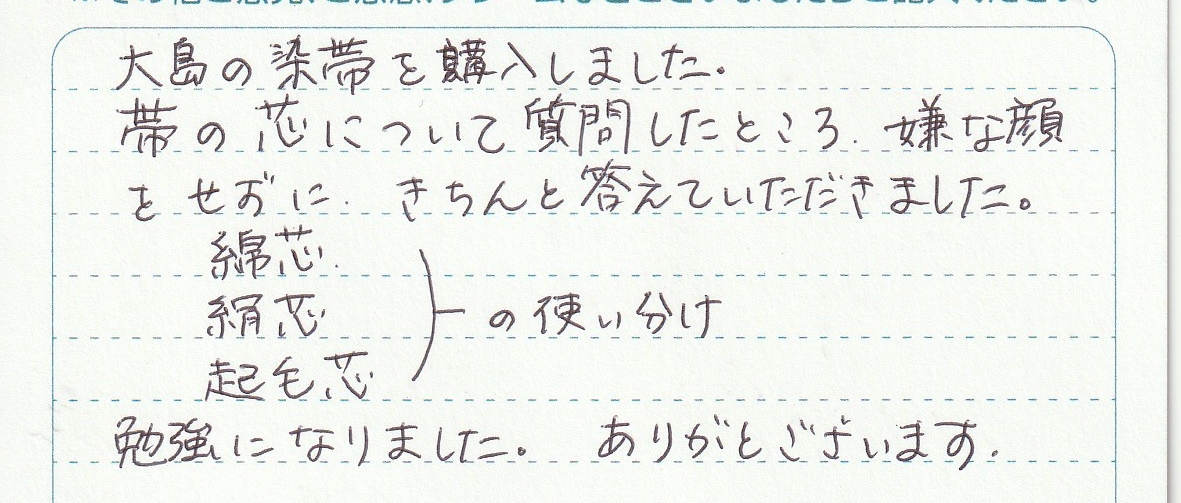 大島の染帯を購入しました.
帯の芯について質問したところ. 嫌な顔
をせずに. きちんと答えていただきました。
綿芯.
絹芯 の使い分け
起毛芯
勉強になりました。 ありがとございます.